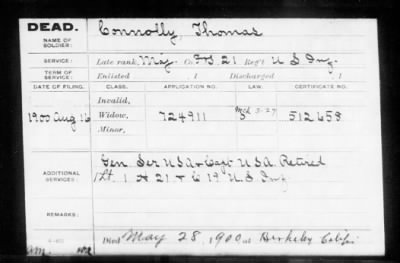 DEAD.
NAME OF SOLDIER: Connolly, Thomas
SERVICE: Late rank, Maj. Co. F&S 21 Reg't U S Inf.
TERM OF SERVICE: Enlisted , 1 Discharged , 1
DATE OF FILING. CLASS. APPLICATION NO. LAW. CERTIFICATE NO.
Invalid,
1900 Aug 16 Widow, 724911 512658
Minor,
ADDITIONAL SERVICES: Gen. Ser USA & Capt USA Retired
Lt. 1 A 21 & C 19" U.S Inf
REMARKS:
Died May 28, 1900 at Berkeley Calif.